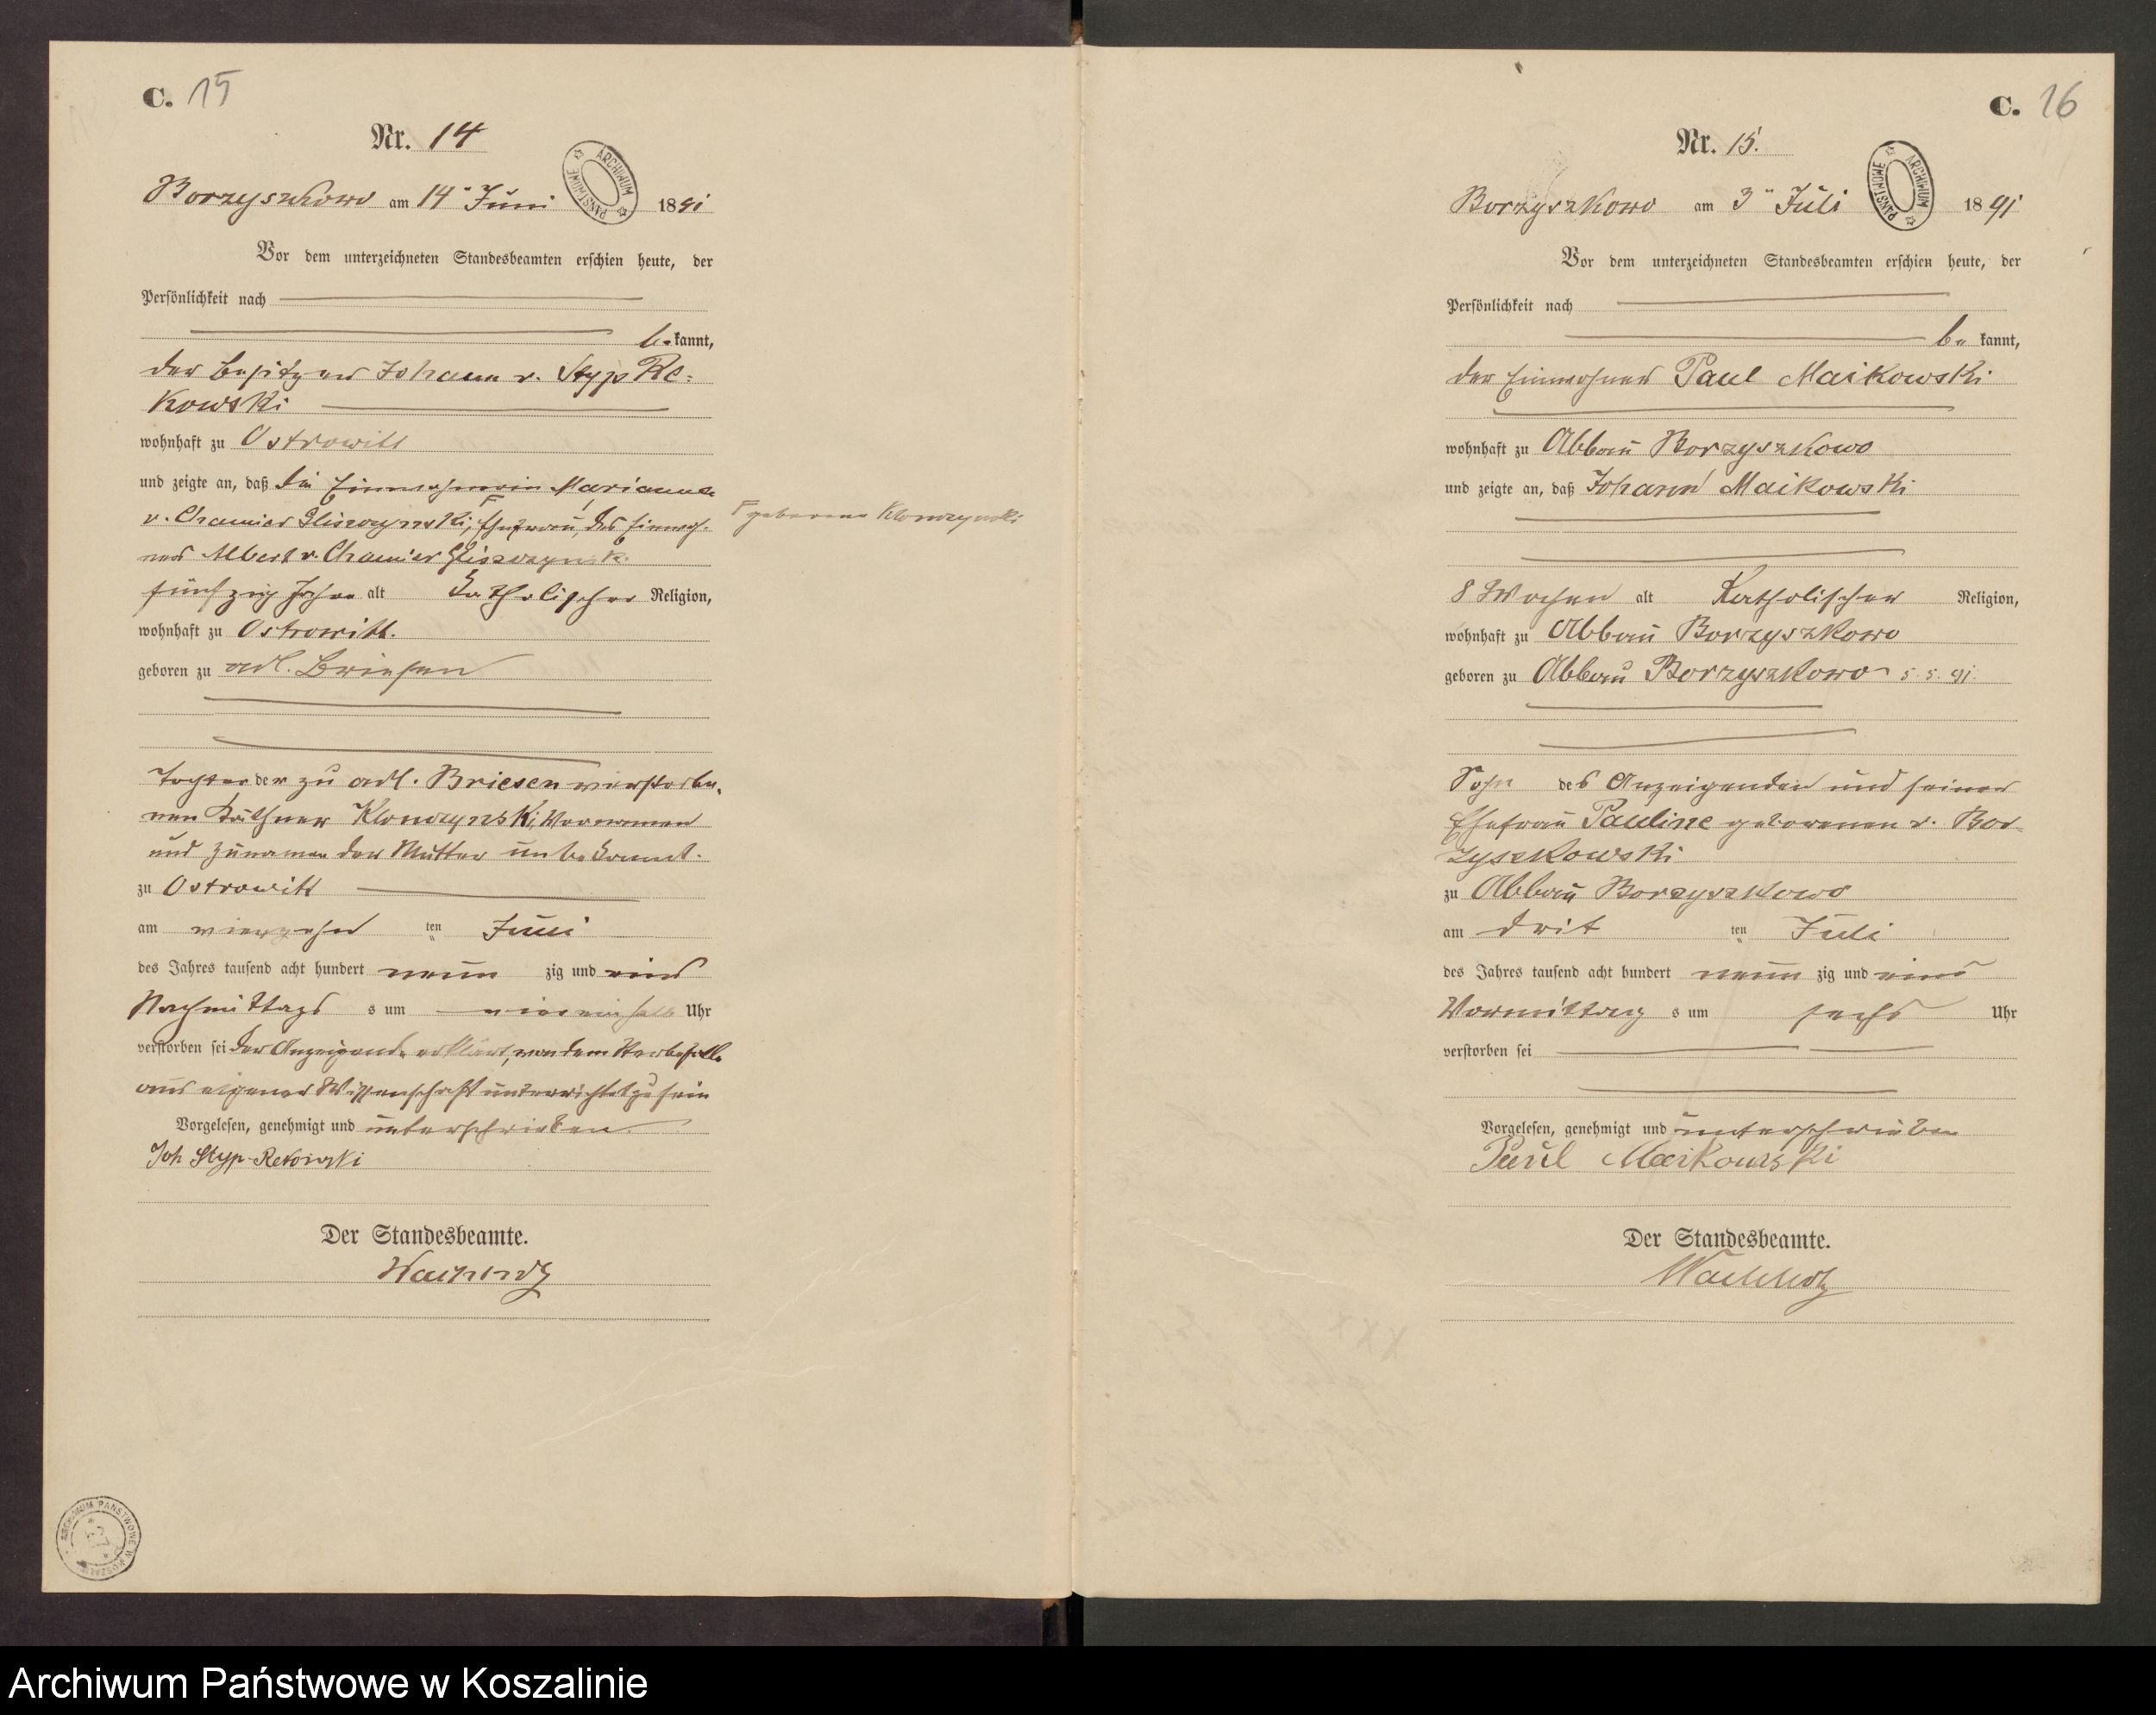 C. 15
Nr. 14
Borzyszkowo am 14" Juni 1891
ARCHIWUM PAŃSTWOWE
Vor dem unterzeichneten Standesbeamten erschien heute, der
Persönlichkeit nach
be kannt,
der Besitzer Johann v. Styp Re=
kowski
wohnhaft zu Ostrowitt
und zeigte an, daß die Einwohnerin Marianna
v. Chamier Gliszczynski, Γ Ehefrau des Einwoh-
ners Albert v. Chamier Gliszczynski
Γ geborene Klonczynski
fünfzig Jahre alt katholischer Religion,
wohnhaft zu Ostrowitt.
geboren zu adl. Briesen
Tochter der zu adl. Briesen verstorbe-
nen Käthner Klonczynski, Vornamen
und Zunamen der Mutter unbekannt.
zu Ostrowitt
am vierzehn ten Juni
des Jahres tausend acht hundert neun zig und eins
Nachmittags s um vier einhalb Uhr
verstorben sei der Anzeigende erklärt, von dem Sterbefalle
aus eigener Wissenschaft unterrichtet zu sein
Vorgelesen, genehmigt und unterschrieben.
Joh Styp-Rekowski
Der Standesbeamte.
Wachholz
ARCHIWUM PAŃSTWOWE W KOSZALINIE
C. 16
Nr. 15.
Borzyszkowo am 3" Juli 1891
ARCHIWUM PAŃSTWOWE
Vor dem unterzeichneten Standesbeamten erschien heute, der
Persönlichkeit nach
be kannt,
der Einwohner Paul Maikowski
wohnhaft zu Abbau Borzyszkowo
und zeigte an, daß Johann Maikowski
8 Wochen alt Katholischer Religion,
wohnhaft zu Abbau Borzyszkowo
geboren zu Abbau Borzyszkowo 5. 5. 91.
Sohn des Anzeigenden und seiner
Ehefrau Pauline geborenen v. Bor-
zyszkowski
zu Abbau Borzyszkowo
am drit ten Juli
des Jahres tausend acht hundert neun zig und eins
Vormittag s um sechs Uhr
verstorben sei
Vorgelesen, genehmigt und unterschrieben
Paul Maikowski
Der Standesbeamte.
Wachholz
Archiwum Państwowe w Koszalinie